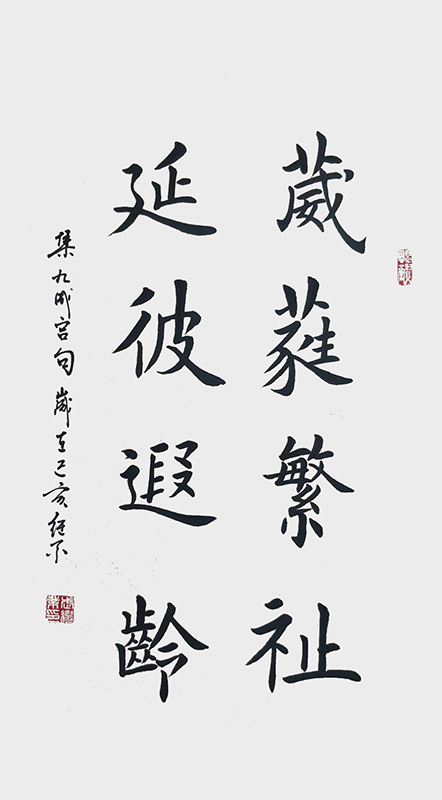 葳蕤繁祉
延彼遐齡
集九成宮句歲在己亥